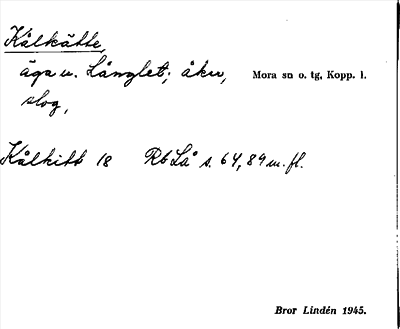 Kålkätte,
äga u. Långlet; åker,
Mora sn o. tg, Kopp. l.
slog,
Kålkitt 18 Rb Lå s. 64, 89 m. fl.
Bror Lindén 1945.